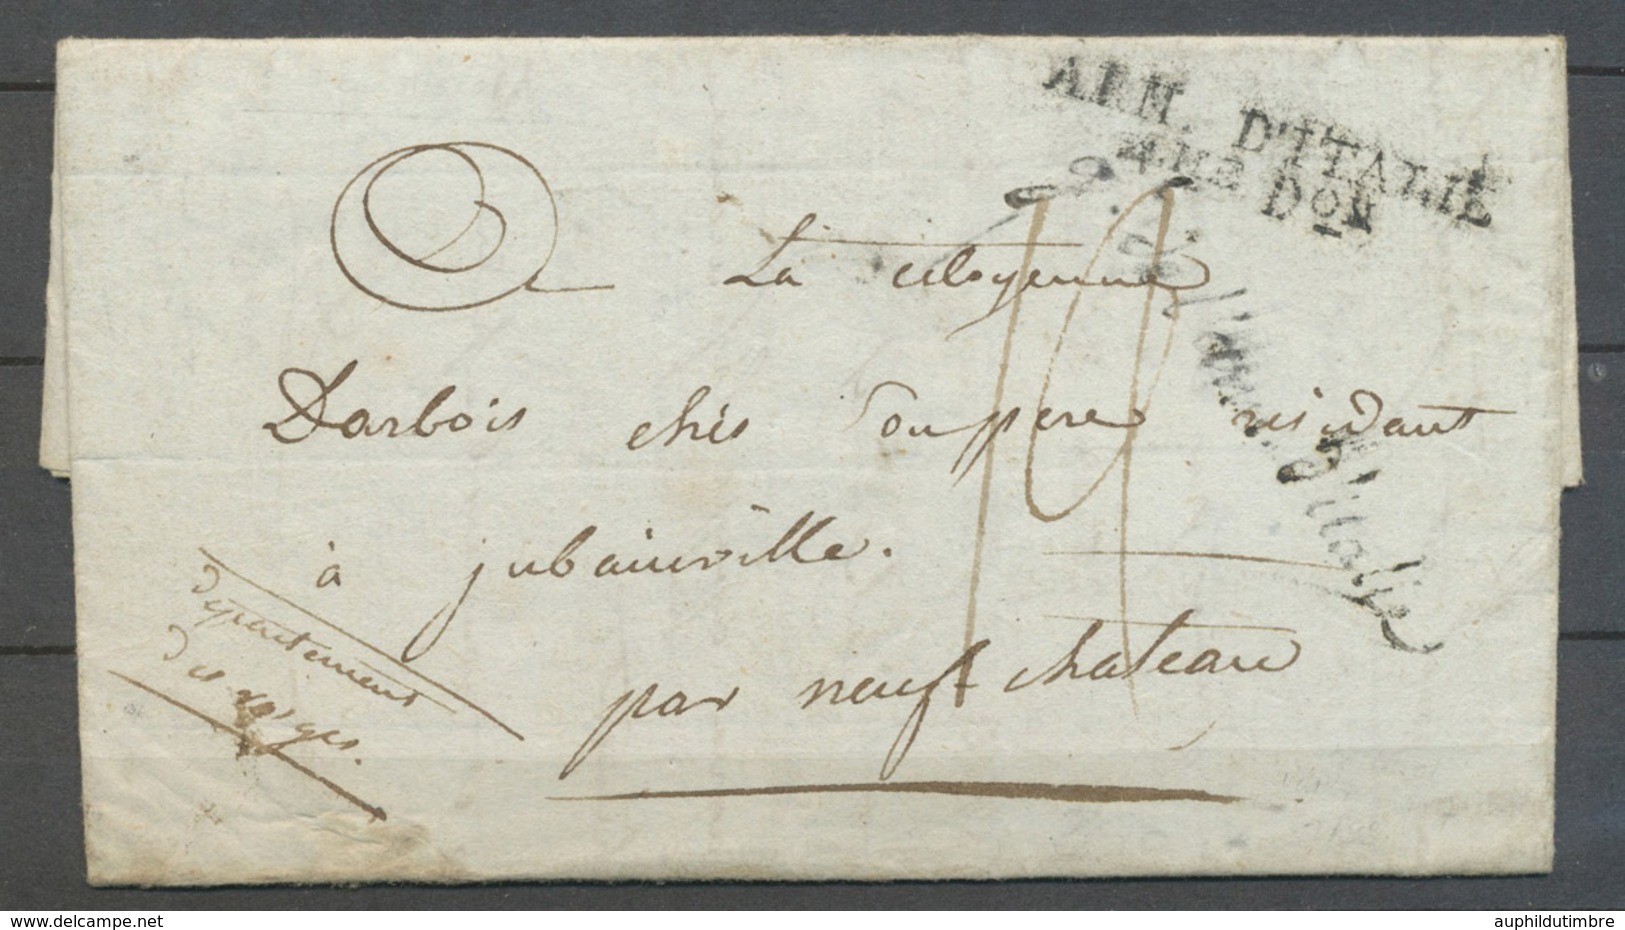 ARM. D'ITALIE
4me Don
La citoyenne
Darbois chés Son pere residant
à jubainville.
par neufchateau
département
des vosges.
14
d'Italie
www.delcampe.net
auphildutimbre